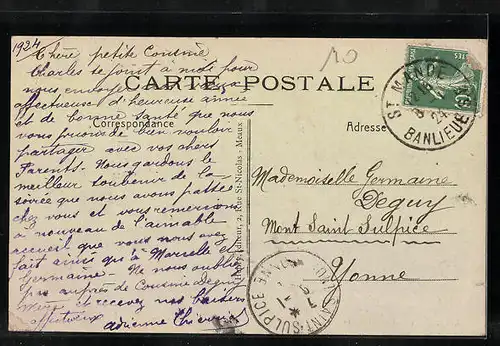 1924
Chère petite Cousine
Charles se joint à moi pour
nous
affectueux d'heureuse année
et de bonne santé que nous
vous prions de bien vouloir
partager avec vos chers
Parents. Nous gardons le
meilleur souvenir de la
soirée que nous avons passée
chez vous et vous remercions
à nouveau de l'aimable
accueil que vous nous avez
fait ainsi qu'à Marcelle et
Germaine. Ne nous oubliez
pas auprès de Cousine Deguy
et recevez nos baisers
affectueux
Adrienne
CARTE POSTALE
Correspondance
Adresse
Éditeur, 2, rue St-Nicolas - Meaux
10
ST MANDÉ
24
BANLIEUE
Mademoiselle Germaine
Deguy
Mont Saint Sulpice
Yonne
SAINT-SULPICE
YONNE